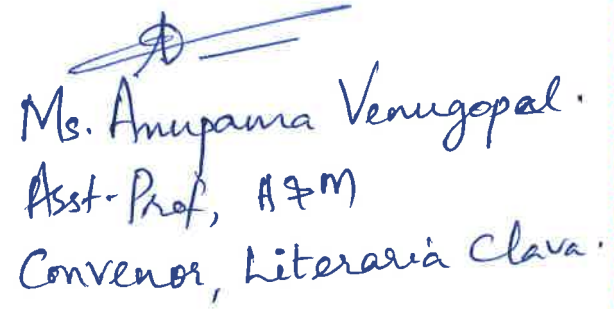 Ms. Anupama Venugopal.
Asst-Prof, A&M
Convenor, Literaria Clava.